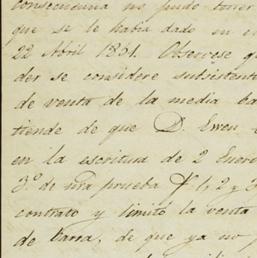 consecuencia no pudo tener
que se le habia dado en e
22 Abril 1831. Observese q
der se considere subsistente
de venta de la media ba
tiende de que D. Ewen
en la escritura de 2 Enero
3º de nra prueba f 1, 2 y 3
contrato y limitó la venta
de barra, de que ya no p